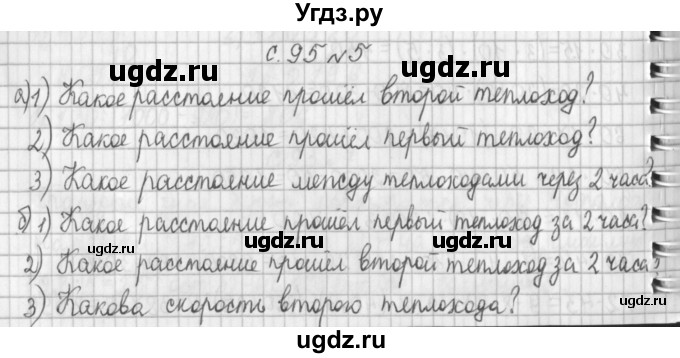 Угдз.ру
с. 95 № 5
ugdz.ru ugdz.ru
а) 1) Какое расстояние прошёл второй теплоход?
2) Какое расстояние прошёл первый теплоход?
3) Какое расстояние между теплоходами через 2 часа?
б) 1) Какое расстояние прошёл первый теплоход за 2 часа?
ugdz.ru ugdz.ru ugdz.ru
2) Какое расстояние прошёл второй теплоход за 2 часа?
3) Какова скорость второго теплохода?
ugdz.ru
ugdz.ru